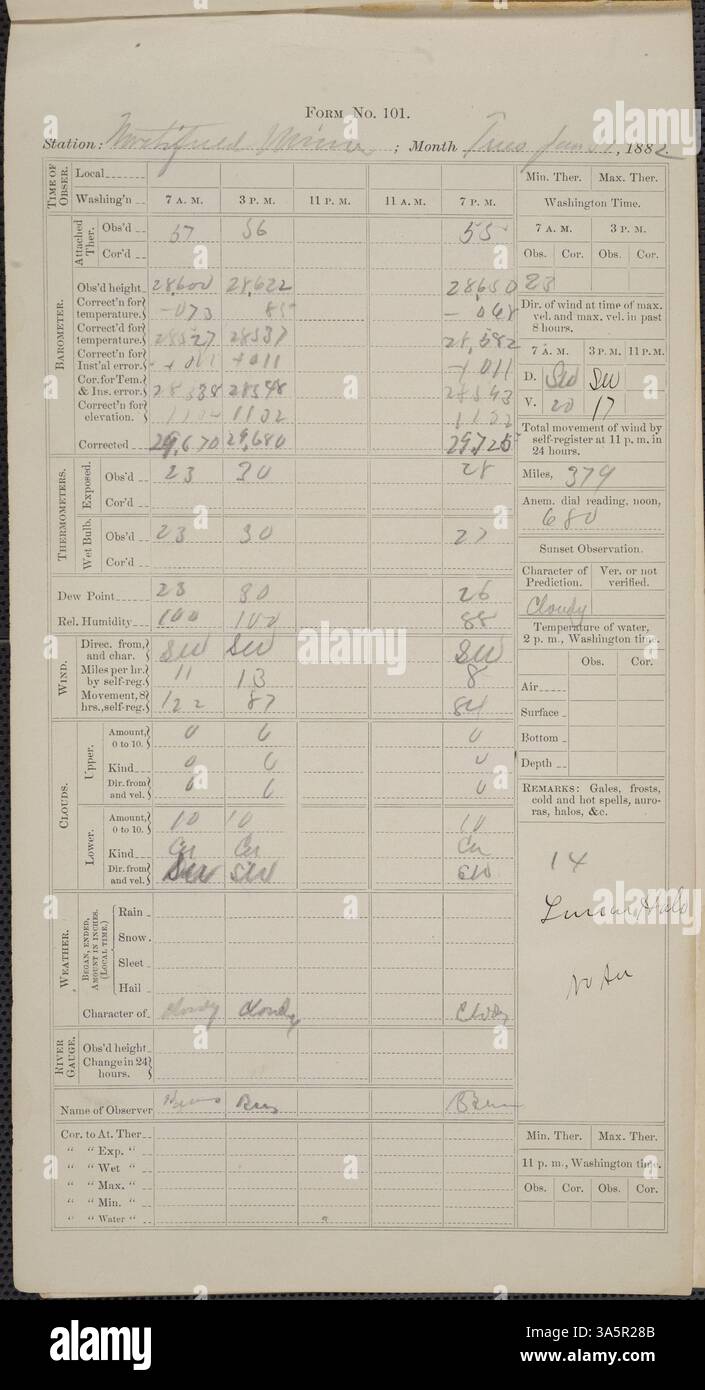 FORM NO. 101.
Station: Northfield Minn ; Month Tues Jan 31, 1882
TIME OF OBSER.
Local
Washing'n 7 A. M. 3 P. M. 11 P. M. 11 A. M. 7 P. M.
Attached Ther.
Obs'd 57 56 55
Cor'd
BAROMETER.
Obs'd height 28,600 28,622 28,650
Correct'n for temperature. -073 85 -068
Correct'd for temperature. 28527 28537 28,582
Correct'n for Inst'al error. +011 +011 +011
Cor. for Tem. & Ins. error. 28538 28548
Correct'n for elevation. 1102 1132
Corrected 29,670 29,680 29,725
THERMOMETERS.
Exposed.
Obs'd 23 30 28
Cor'd
Wet Bulb.
Obs'd 23 30 27
Cor'd
Dew Point 23 30 26
Rel. Humidity 100 100 88
WIND.
Direc. from, and char. SW SW SW
Miles per hr. by self-reg. 11 13 8
Movement, 8 hrs., self-reg. 122 87 84
CLOUDS.
Upper.
Amount, 0 to 10. 0 0 0
Kind 0 0 0
Dir. from and vel. 0 0 0
Lower.
Amount, 0 to 10. 10 10 10
Kind Cu Cu Cu
Dir. from and vel. SW SW SW
WEATHER.
BEGAN, ENDED, AMOUNT IN INCHES. (LOCAL TIME.)
Rain
Snow
Sleet
Hail
Character of Cloudy Cloudy Cloudy
RIVER GAUGE.
Obs'd height
Change in 24 hours.
Name of Observer
Cor. to At. Ther
" " Exp. "
" " Wet "
" " Max. "
" " Min. "
" " Water "
Min. Ther. Max. Ther.
Washington Time.
7 A. M. 3 P. M.
Obs. Cor. Obs. Cor.
23
Dir. of wind at time of max. vel. and max. vel. in past 8 hours.
7 A. M. 3 P. M. 11 P. M.
D. SW SW
V. 20 17
Total movement of wind by self-register at 11 p. m. in 24 hours.
Miles, 379
Anem. dial reading, noon,
680
Sunset Observation.
Character of Prediction. Ver. or not verified.
Cloudy
Temperature of water, 2 p. m., Washington time.
Obs. Cor.
Air
Surface
Bottom
Depth
REMARKS: Gales, frosts, cold and hot spells, auroras, halos, &c.
14
Lunar Halo
No Au
Min. Ther. Max. Ther.
11 p. m., Washington time.
Obs. Cor. Obs. Cor.
alamy
alamy
Image ID: 3A5R28B
www.alamy.com